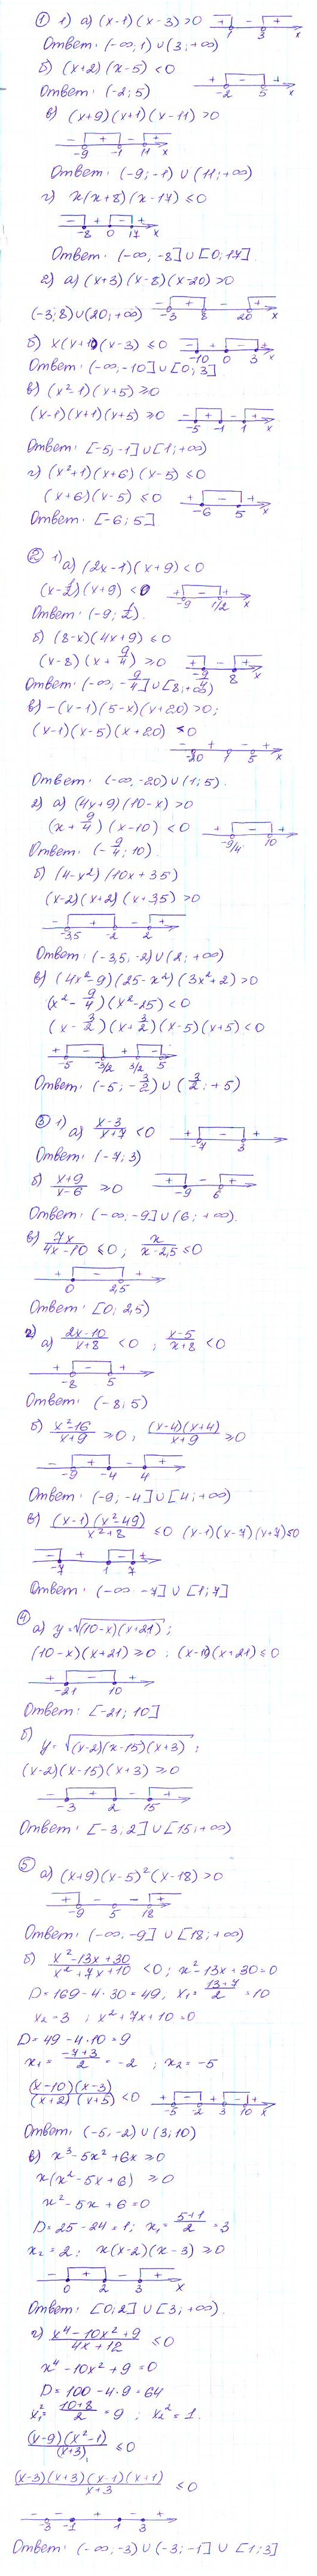 ① 1) а) (x-1)(x-3)>0
+ - +
1 3 x
Ответ: (-∞; 1) ∪ (3; +∞)
б) (x+2)(x-5) <0
+ - +
-2 5 x
Ответ: (-2; 5)
в) (x+9)(x+1)(x-11) >0
- + - +
-9 -1 11 x
Ответ: (-9; -1) ∪ (11; +∞)
г) x(x+8)(x-17) ≤0
- + - +
-8 0 17 x
Ответ: (-∞, -8] ∪ [0; 17]
2) а) (x+3)(x-8)(x-20) >0
(-3; 8) ∪ (20; +∞)
- + - +
-3 8 20 x
б) x(x+10)(x-3) ≤0
- + - +
-10 0 3 x
Ответ: (-∞; -10] ∪ [0; 3]
в) (x²-1)(x+5) ≥0
(x-1)(x+1)(x+5) ≥0
- + - +
-5 -1 1 x
Ответ: [-5; -1] ∪ [1; +∞)
г) (x²+1)(x+6)(x-5) ≤0
(x+6)(x-5) ≤0
+ - +
-6 5 x
Ответ: [-6; 5]
② 1) а) (2x-1)(x+9) <0
(x-½)(x+9) <0
+ - +
-9 1/2 x
Ответ: (-9; ½).
б) (8-x)(4x+9) ≤0
(x-8)(x+9/4) ≥0
+ - +
-9/4 8
Ответ: (-∞; -9/4] ∪ [8; +∞)
в) -(x-1)(5-x)(x+20) >0;
(x-1)(x-5)(x+20) <0
- + - +
-20 1 5 x
Ответ: (-∞; -20) ∪ (1; 5).
2) а) (4x+9)(10-x) >0
(x+9/4)(x-10) <0
+ - +
-9/4 10
Ответ: (-9/4; 10).
б) (4-x²)(10x+35)
(x-2)(x+2)(x+3,5) >0
- + - +
-3,5 -2 2
Ответ: (-3,5; -2) ∪ (2; +∞)
в) (4x²-9)(25-x²)(3x²+2) >0
(x²-9/4)(x²-25) <0
(x-3/2)(x+3/2)(x-5)(x+5) <0
+ - + - +
-5 -3/2 3/2 5
Ответ: (-5; -3/2) ∪ (3/2; +5)
③ 1) а) (x-3)/(x+7) <0
+ - +
-7 3
Ответ: (-7; 3)
б) (x+9)/(x-6) ≥0
+ - +
-9 6
Ответ: (-∞; -9] ∪ (6; +∞).
в) 7x/(4x-10) ≤0; x/(x-2,5) ≤0
+ - +
0 2,5
Ответ: [0; 2,5)
2) а) (2x-10)/(x+8) <0; (x-5)/(x+8) <0
+ - +
-8 5
Ответ: (-8; 5)
б) (x²-16)/(x+9) ≥0; (x-4)(x+4)/(x+9) ≥0
- + - +
-9 -4 4
Ответ: (-9; -4] ∪ [4; +∞)
в) (x-1)(x²-49)/(x²+8) ≤0 (x-1)(x-7)(x+7)≤0
- + - +
-7 1 7
Ответ: (-∞ -7] ∪ [1; 7]
④ а) y=√(10-x)(x+21);
(10-x)(x+21) ≥0; (x-10)(x+21) ≤0
+ - +
-21 10
Ответ: [-21; 10]
б)
y=√(x-2)(x-15)(x+3);
(x-2)(x-15)(x+3) ≥0
- + - +
-3 2 15
Ответ: [-3; 2] ∪ [15; +∞)
⑤ а) (x+9)(x-5)²(x-18) >0
+ - - +
-9 5 18
Ответ: (-∞, -9] ∪ [18; +∞)
б) (x²-13x+30)/(x²+7x+10) <0; x²-13x+30=0
D=169-4·30=49, x₁=(13+7)/2=10
x₂=3; x²+7x+10=0
D=49-4·10=9
x₁=(-7+3)/2=-2; x₂=-5
(x-10)(x-3)/(x+2)(x+5) <0
+ - + - +
-5 -2 3 10 x
Ответ: (-5, -2) ∪ (3; 10)
в) x³-5x²+6x ≥0
x(x²-5x+6) ≥0
x²-5x+6=0
D=25-24=1; x₁=(5+1)/2=3
x₂=2; x(x-2)(x-3) ≥0
- + - +
0 2 3 x
Ответ: [0; 2] ∪ [3; +∞).
г) (x⁴-10x²+9)/(4x+12) ≤0
x⁴-10x²+9=0
D=100-4·9=64
x₁²=(10+8)/2=9; x₂²=1.
(x-9)(x²-1)/(x+3) ≤0
(x-3)(x+3)(x-1)(x+1)/(x+3) ≤0
- - + - +
-3 -1 1 3
Ответ: (-∞; -3) ∪ (-3; -1] ∪ [1; 3]